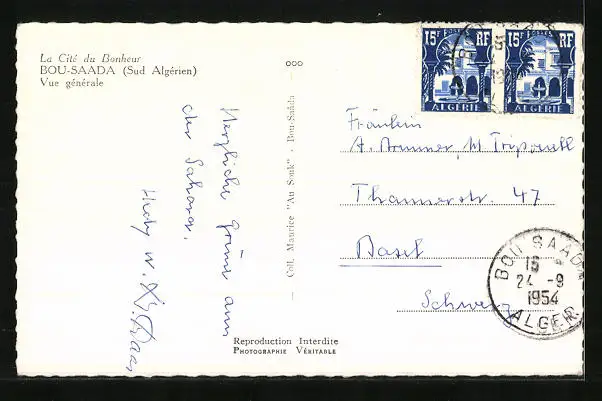 La Cité du Bonheur
BOU-SAADA (Sud Algérien)
Vue générale
Herzliche Grüsse aus
der Sahara.
Hedy u.
Coll. Maurice "Au Souk" - Bou-Saâda
Reproduction Interdite
PHOTOGRAPHIE VÉRITABLE
15F RF
ALGERIE
15F RF
ALGERIE
Fräulein
A. Brunner, M.
Thannerstr. 47
Basel
Schweiz
BOU SAADA
24 -9
1954
ALGER